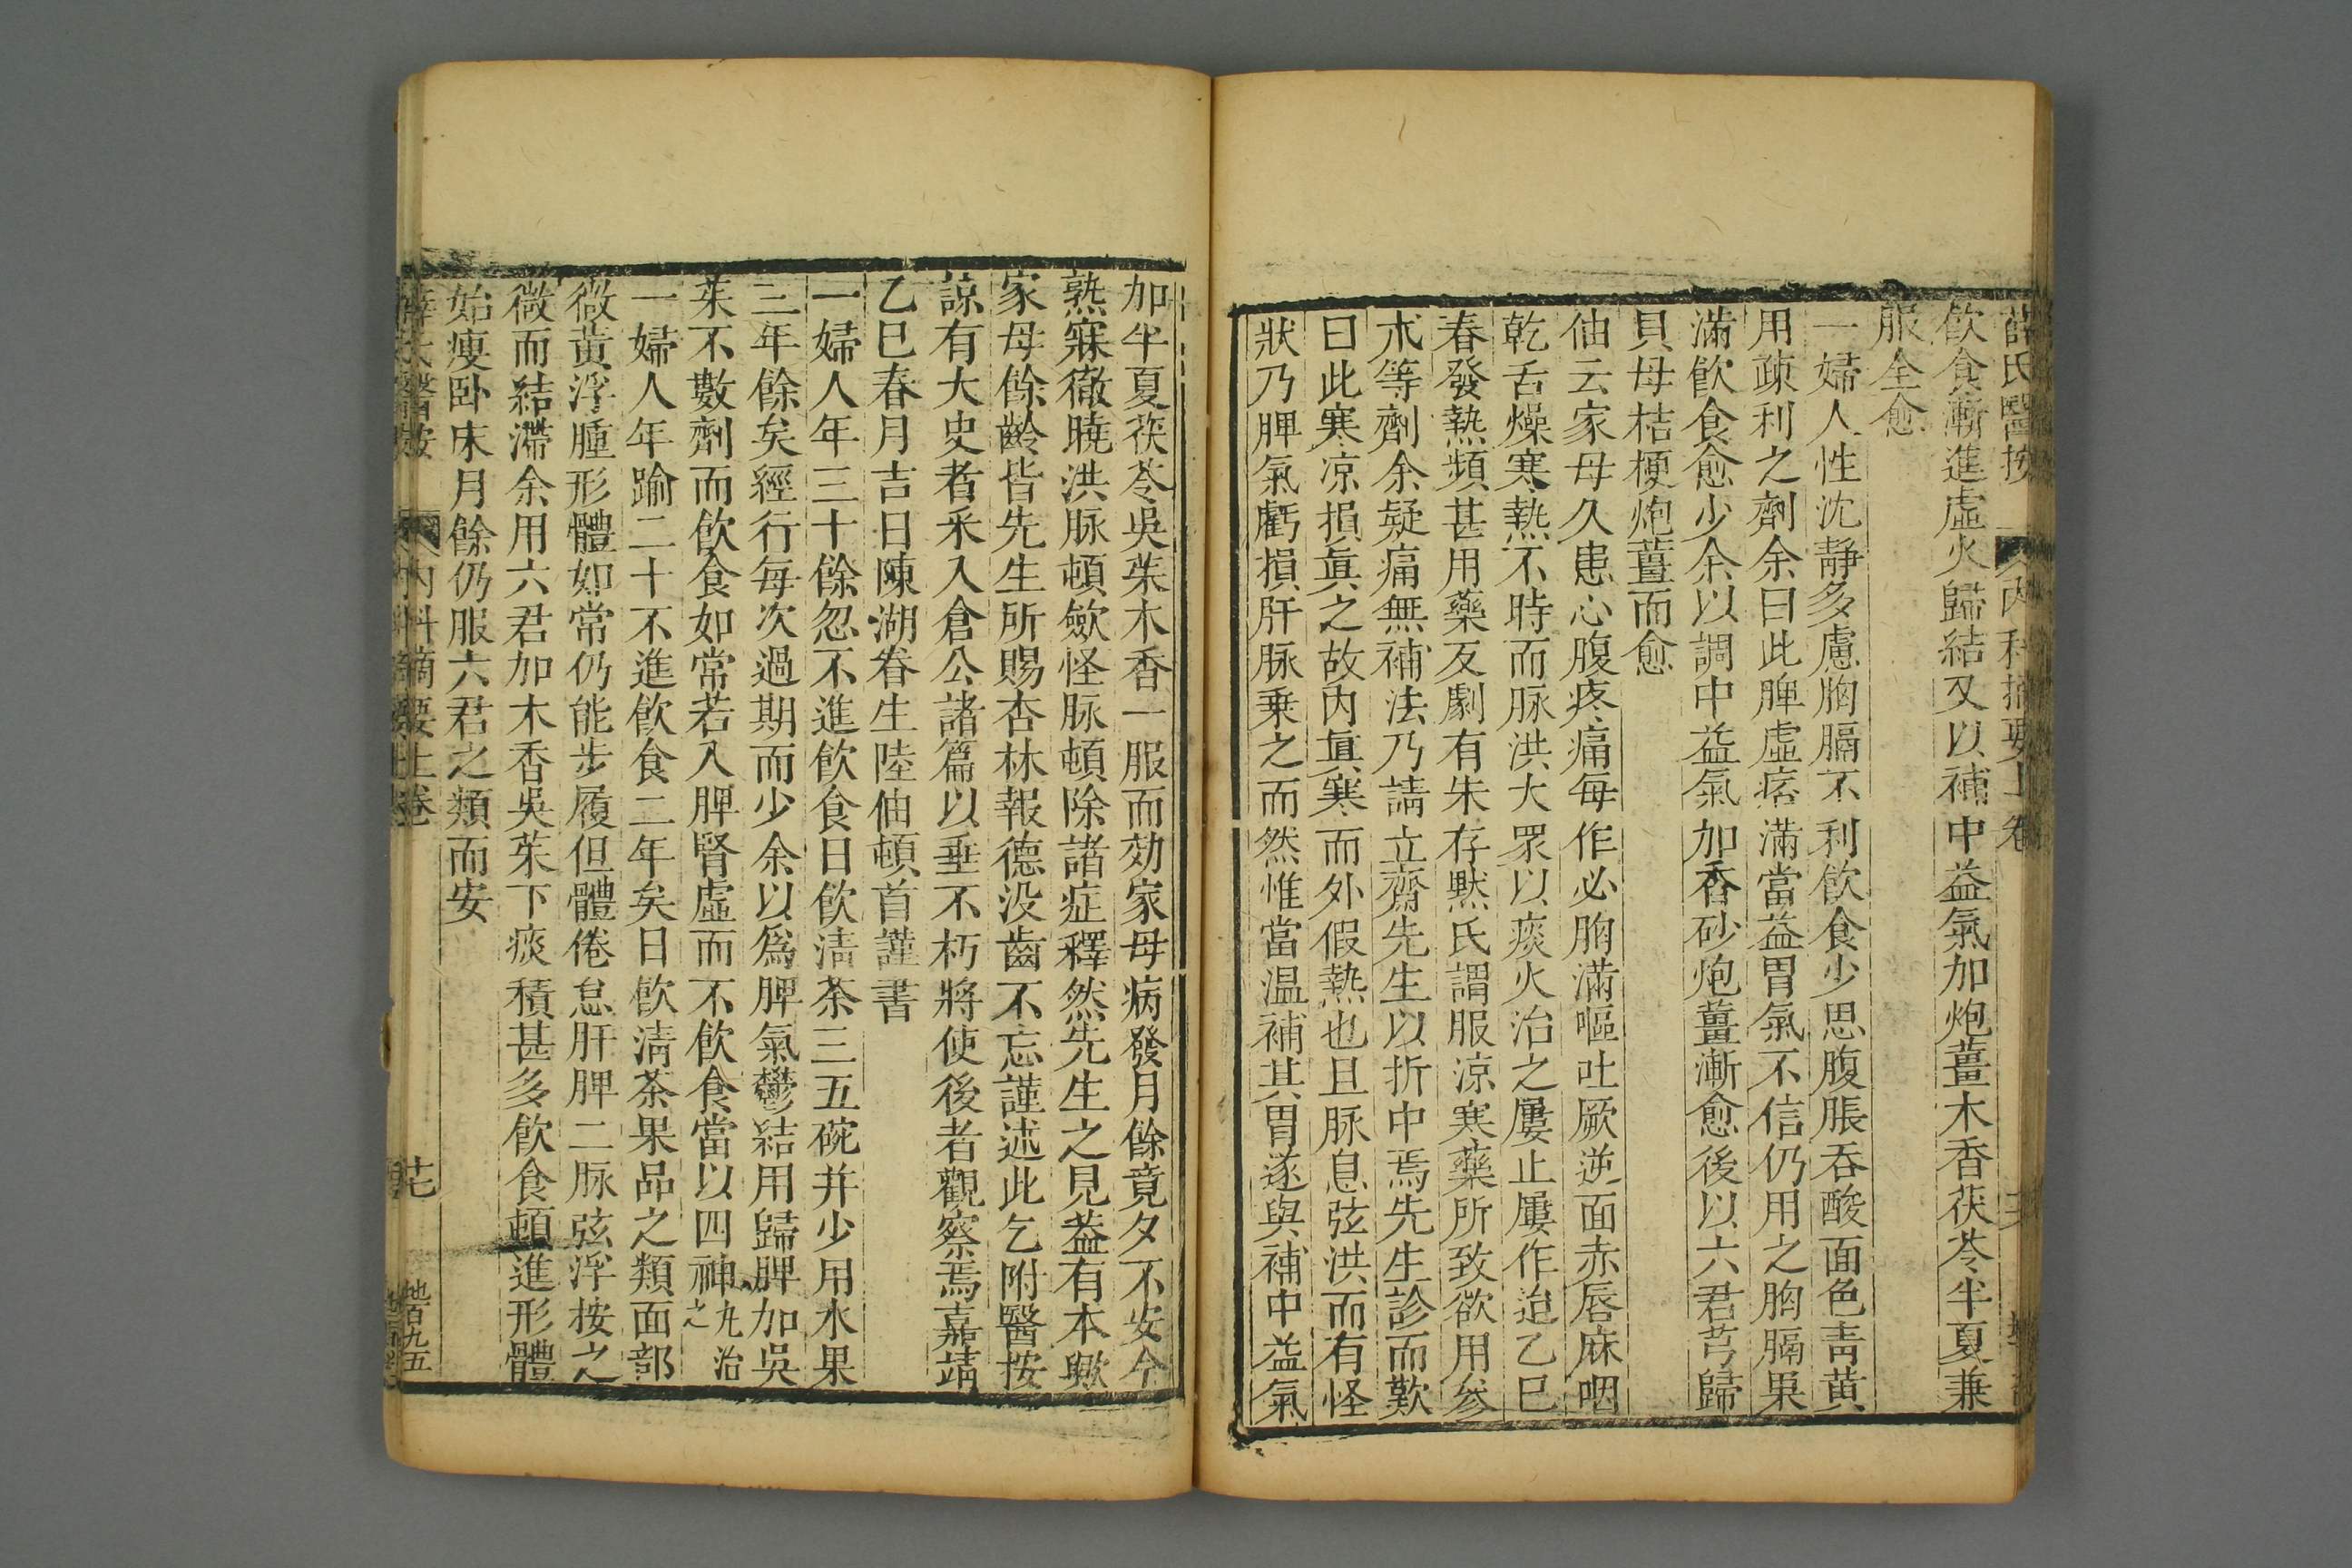 薛氏醫按 內科摘要上卷
飲食漸進虛火歸結又以補中益氣加炮薑木香茯苓半夏兼
服全愈
一婦人性沈靜多慮胸膈不利飲食少思腹脹吞酸面色青黃
用疎利之劑余曰此脾虛痞滿當益胃氣不信仍用之胸膈果
滿飲食愈少余以調中益氣加香砂炮薑漸愈後以六君芎歸
貝母桔梗炮薑而愈
伷云家母久患心腹疼痛每作必胸滿嘔吐厥逆面赤唇麻咽
乾舌燥寒熱不時而脉洪大眾以痰火治之屢止屢作迨乙巳
春發熱頻甚用藥反劇有朱存默氏謂服涼寒藥所致欲用參
朮等劑余疑痛無補法乃請立齋先生以折中焉先生診而歎
曰此寒凉損眞之故內眞寒而外假熱也且脉息弦洪而有怪
狀乃脾氣虧損肝脉乘之而然惟當温補其胃遂與補中益氣
加半夏茯苓吳茱木香一服而効家母病發月餘竟夕不安今
熟寐徹曉洪脉頓歛怪脉頓除諸症釋然先生之見葢有本歟
家母餘齡皆先生所賜杏林報德没齒不忘謹述此乞附醫按
諒有大史者采入倉公諸篇以垂不朽將使後者觀察焉嘉靖
乙巳春月吉日陳湖眷生陸伷頓首謹書
一婦人年三十餘忽不進飲食日飲清茶三五碗并少用水果
三年餘矣經行每次過期而少余以爲脾氣鬱結用歸脾加吳
茱不數劑而飲食如常若入脾腎虛而不飲食當以四神丸治之
一婦人年踰二十不進飲食二年矣日飲清茶果品之類面部
微黃浮腫形體如常仍能步履但體倦怠肝脾二脉弦浮按之
微而結滯余用六君加木香吳茱下痰積甚多飲食頓進形體
始瘦卧床月餘仍服六君之類而安
薛氏醫按 內科摘要上卷 十七 地百九五